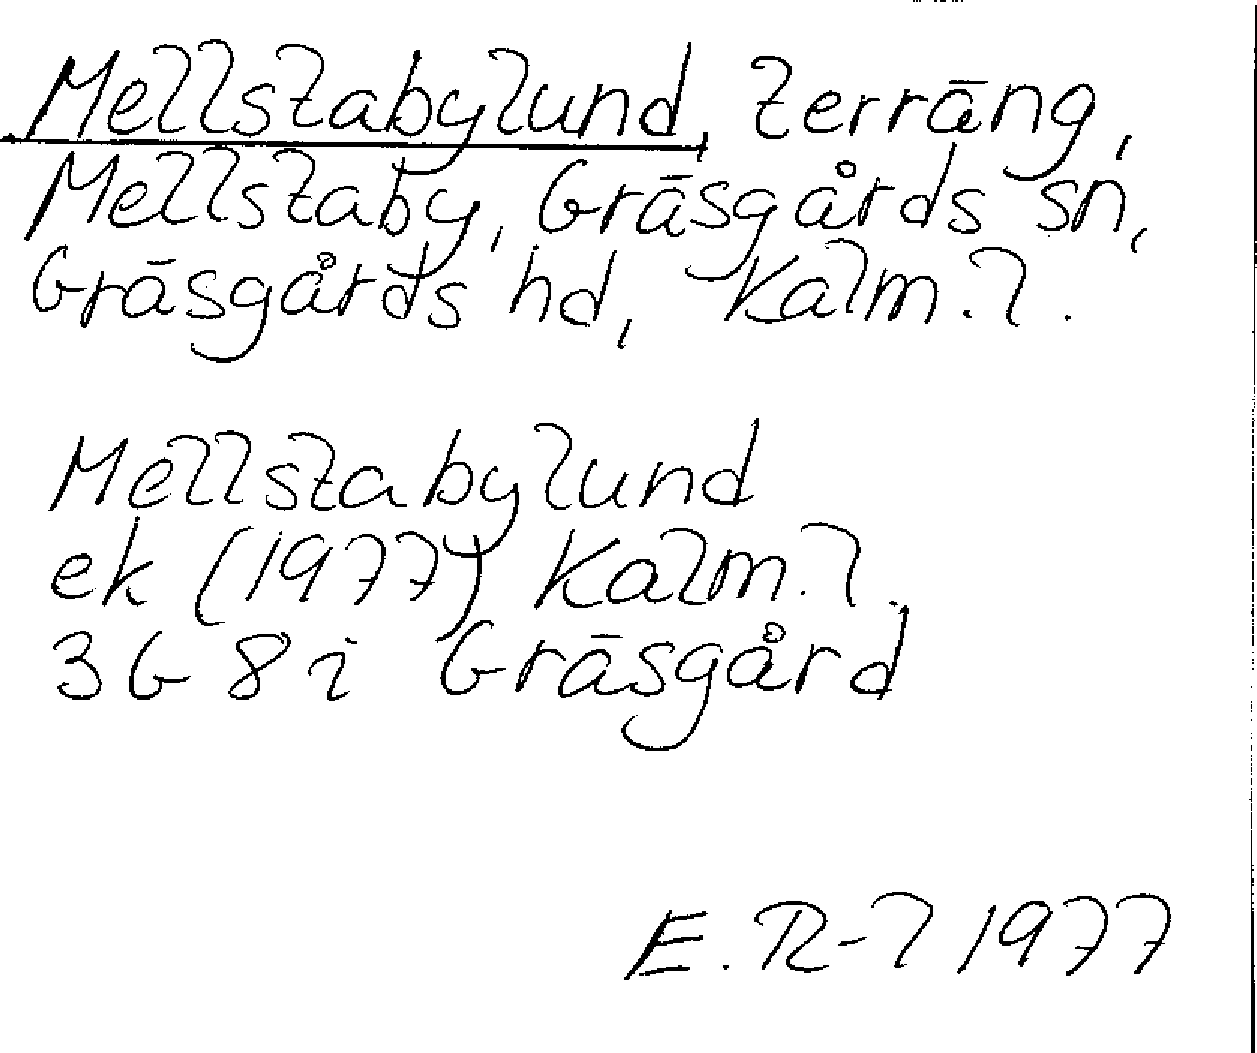 Mellstabylund, terräng,
Mellstaby, Gräsgårds sn,
Gräsgårds hd, Kalm. l.
Mellstabylund
ek (1977) Kalm. l.
3G 8i Gräsgård
E. R-l 1977